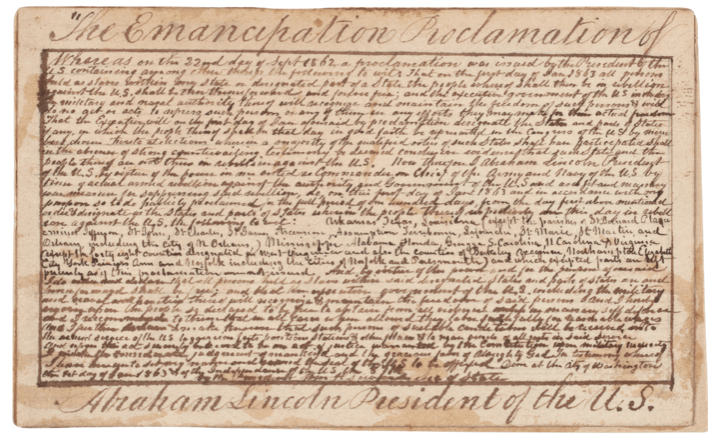 "The Emancipation Proclamation of
Whereas on the 22nd day of Sept 1862 a proclamation was issued by the President of the
U.S. containing among other things the following to wit: That on the first day of Jan 1863 all persons
held as slaves within any state or designated part of a state, the people whereof shall then be in rebellion
against the U.S. shall be then thenceforward and forever free; and the executive government of the U.S. including
the military and naval authority thereof will recognize and maintain the freedom of such persons & will
do no act or acts to repress such persons or any of them in any efforts they may make for their actual freedom
That the Executive will on the first day of Jan aforesaid by proclamation designate the States and parts of states
if any, in which the people thereof
people thereof are not then in rebellion against the U.S. Now therefore I Abraham Lincoln President
of the U.S. by virtue of the power in me vested as Commander in Chief of the Army and Navy of the U.S. in
time of actual armed rebellion against the authority and Government of the U.S. and as a fit and necessary
war measure for suppressing said rebellion, do on this first day of Jan 1863 and in accordance with my
purpose so to do publicly proclaimed for the full period of one hundred days, from the day first above mentioned
order & designate as the States and parts of states wherein the people thereof respectively are this day in rebel
lion against the U.S. the following to wit: Arkansas Texas Louisiana except the parishes of St Bernard Plaque
mines Jefferson, St John, St Charles, St James, Ascension Assumption Terrebonne Lafourche St Marie St Martin and
Orleans, including the city of N. Orleans,) Mississippi Alabama Florida Georgia S. Carolina N. Carolina & Virginia
except the forty eight counties designated as West Virginia and also the counties of Berkeley Accomac Northampton Elizabeth
City York Princess Ann and Norfolk including the cities of Norfolk and Portsmouth) and which excepted parts are left
precisely as if this proclamation were not issued. And by virtue of the power and for the purpose aforesaid
I do order and declare that all persons held as slaves within said designated states and parts of states are and
the executive government of the U.S. including the military
and naval authorities thereof will recognize & maintain the freedom of said persons And I hereby
enjoin upon the people so declared to be free to abstain from all violence unless in necessary self defence
and I recommend to them that in all cases when allowed they labor faithfully for
And I further declare & make known that such persons of suitable condition will be received into
the armed service of the U.S. to garrison forts positions stations & other places & to man vessels of all sorts in said service
And upon this act
the considerate judgment of mankind and the gracious favor of Almighty God In testimony whereof
I have hereunto set my name and caused the seal of the U.S. to be affixed Done at the City of Washington
the 1st day of Jan 1863 & of the Independence of the U.S. the 87th
Abraham Lincoln President of the U.S.